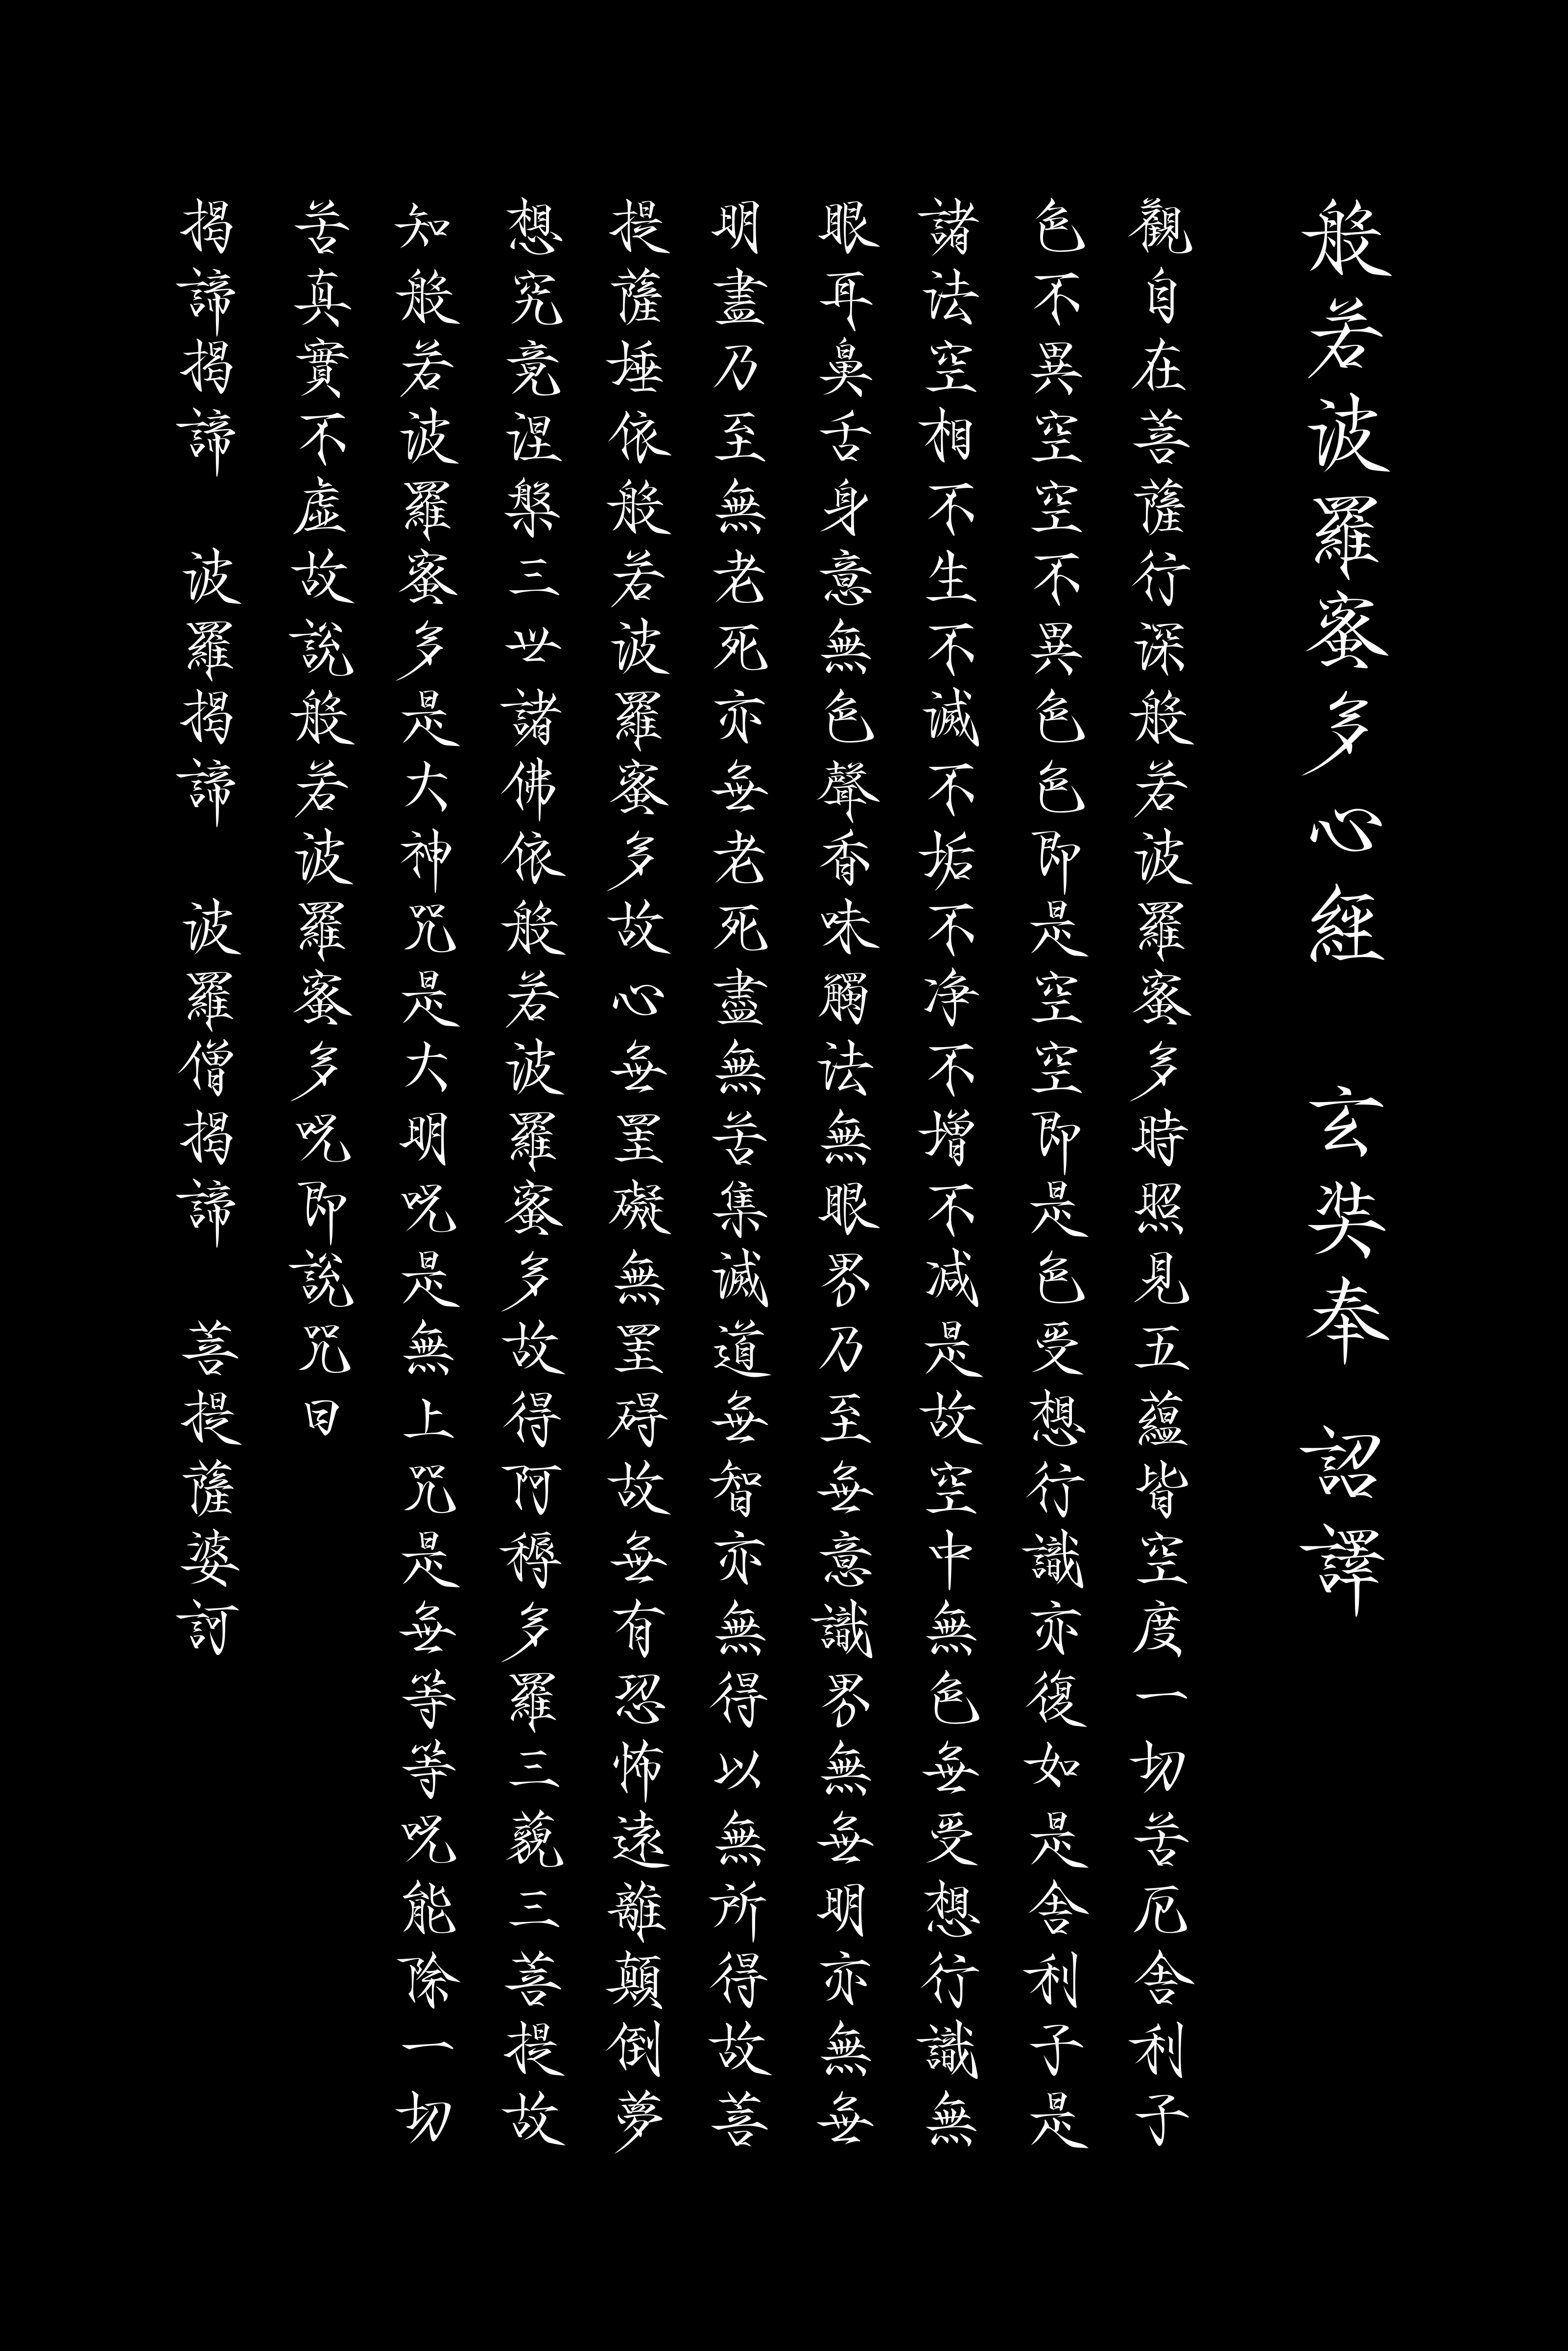 般若波羅蜜多心經 玄奘奉 詔譯
觀自在菩薩行深般若波羅蜜多時照見五蘊皆空度一切苦厄舍利子
色不異空空不異色色即是空空即是色受想行識亦復如是舍利子是
諸法空相不生不滅不垢不净不增不减是故空中無色无受想行識無
眼耳鼻舌身意無色聲香味觸法無眼界乃至无意識界無无明亦無无
明盡乃至無老死亦无老死盡無苦集滅道无智亦無得以無所得故菩
提薩埵依般若波羅蜜多故心无罣礙無罣碍故无有恐怖遠離顛倒夢
想究竟涅槃三世諸佛依般若波羅蜜多故得阿耨多羅三藐三菩提故
知般若波羅蜜多是大神咒是大明呪是無上咒是无等等呪能除一切
苦真實不虛故說般若波羅蜜多呪即說咒曰
揭諦揭諦 波羅揭諦 波羅僧揭諦 菩提薩婆訶